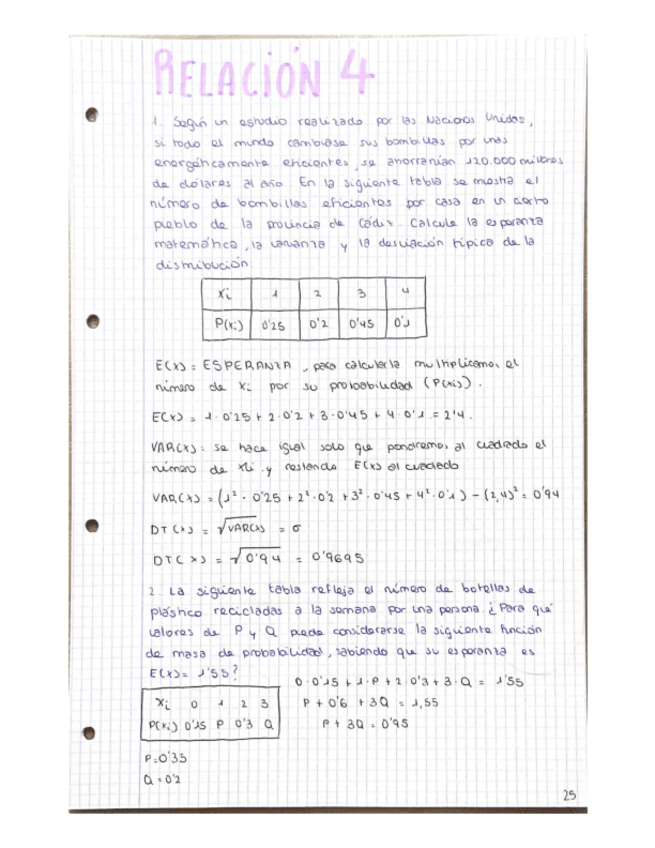 RELACIÓN 4
1. Según un estudio realizado por las Nacions Unidas,
si todo el mundo cambiase sus bombillas por unas
energéticamente eficientes, se ahorrarían 120.000 millones
de dólares al año. En la siguiente tabla se mostra el
número de bombillas eficientes por casa en un cierto
pueblo de la provincia de Cádiz. Calcule la esperanza
matemática, la varianza y la desviación típica de la
distribución
Xi 1 2 3 4
P(Xi) 0'25 0'2 0'45 0'1
E(X) = ESPERANZA, para calcularla multiplicamos el
número de Xi por su probabilidad (P(Xi)).
E(X) = 1·0'25 + 2·0'2 + 3·0'45 + 4·0'1 = 2'4.
VAR(X): se hace igual solo que pondremos al cuadrado el
número de Xi y restando E(X) al cuadrado
VAR(X) = (1²·0'25 + 2²·0'2 + 3²·0'45 + 4²·0'1) - (2,4)² = 0'94
DT(X) = √VAR(X) = σ
DT(X) = √0'94 = 0'9695
2. La siguiente tabla refleja el número de botellas de
plástico recicladas a la semana por una persona. ¿Para qué
valores de P y Q puede considerarse la siguiente función
de masa de probabilidad, sabiendo que su esperanza es
E(X) = 1'55?
0·0'15 + 1·P + 2·0'3 + 3·Q = 1'55
Xi 0 1 2 3
P + 0'6 + 3Q = 1,55
P(Xi) 0'15 P 0'3 Q
P + 3Q = 0'95
P = 0'35
Q = 0'2
25